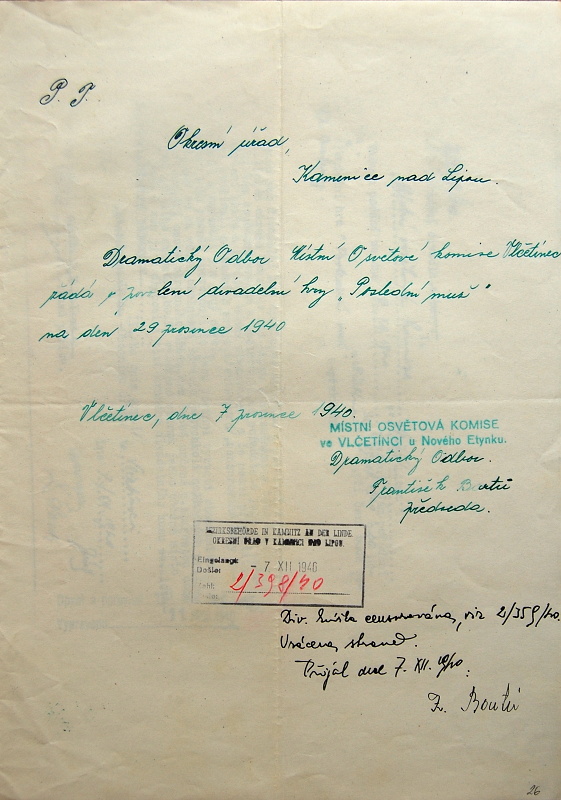 P. T.
Okresní úřad,
Kamenice nad Lipou.
Dramatický Odbor Místní Osvětové komise Vlčetínec
žádá o povolení divadelní hry „Poslední muž"
na den 29 prosince 1940
Vlčetínec, dne 7 prosince 1940.
MÍSTNÍ OSVĚTOVÁ KOMISE
ve VLČETÍNCI u Nového Etynku.
Dramatický Odbor.
František Bartů
předseda.
BEZIRKSBEHÖRDE IN KAMNITZ AN DER LINDE.
OKRESNÍ ÚŘAD V KAMENICI NAD LIPOU.
Eingelangt:
Došlo:
- 7 XII 1940
Zahl:
2/398/40
Div. knížka censurována, viz 2/359/40.
Vrácena straně.
Přijal dne 7. XII. 1940.
Fr. Bartů
26